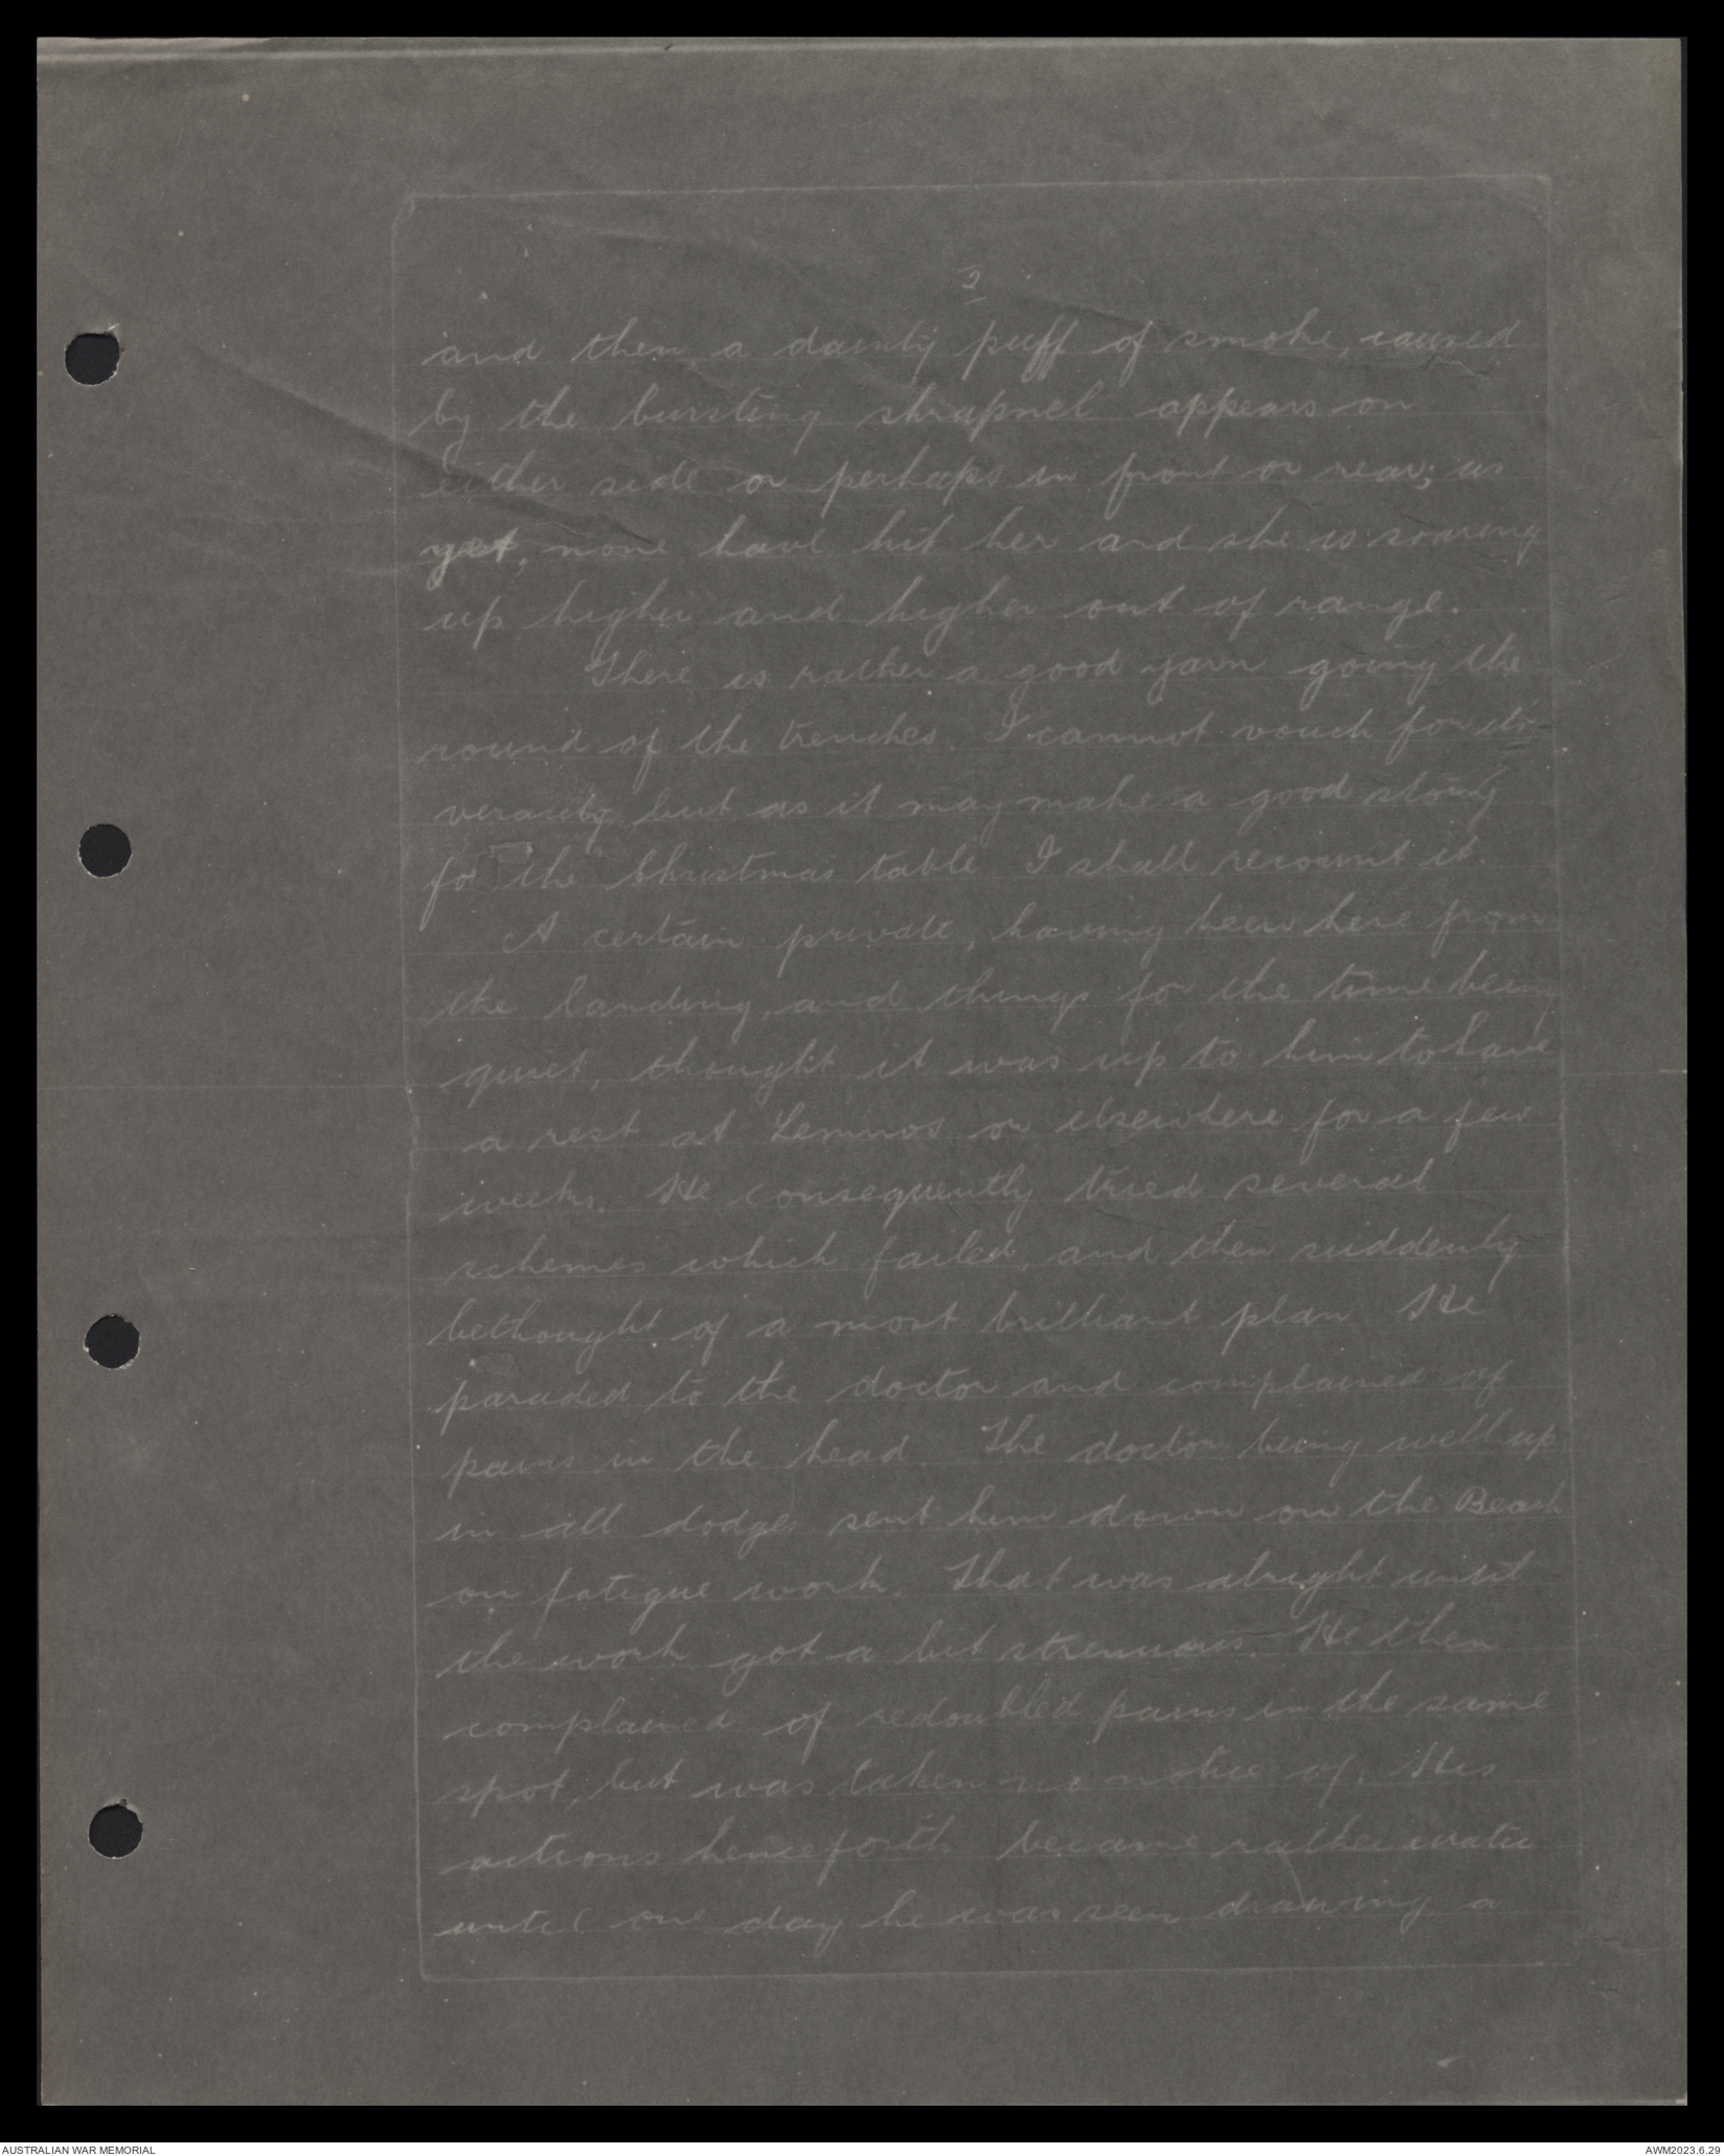 2
and then a dainty puff of smoke, caused
by the bursting shrapnel appears on
either side or perhaps in front or rear; as
yet, none have hit her and she is soaring
up higher and higher out of range.
There is rather a good yarn going the
round of the trenches. I cannot vouch for its
veracity but as it may make a good story
for the Christmas table I shall recount it.
A certain private, having been here from
the landing, and things for the time being
quiet, thought it was up to him to have
a rest at Lemnos or elsewhere for a few
weeks. He consequently tried several
schemes which failed, and then suddenly
bethought of a most brilliant plan. He
paraded to the doctor and complained of
pains in the head. The doctor being well up
in all dodges sent him down on the Beach
on fatigue work. That was alright until
the work got a bit strenuous. He then
complained of redoubled pains in the same
spot, but was taken no notice of. His
actions henceforth became rather erratic
until one day he was seen drawing a
AUSTRALIAN WAR MEMORIAL
AWM2023.6.29